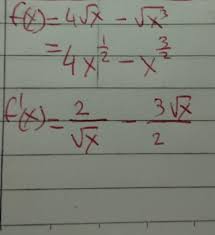 f(x) = 4√x - √x³
= 4x^(1/2) - x^(3/2)
f'(x) = 2/√x - 3√x/2